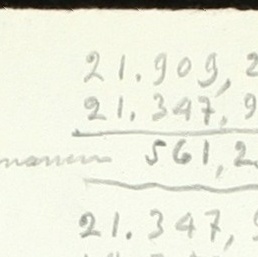 21.909,2
21.347,9
561,2
21.347,9